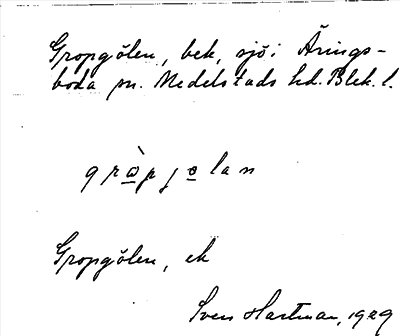 Gropgölen, bek, sjö i Årings-
boda sn. Medelstads hd. Blek. l.
gràpjölan
Gropgölen, ek
Sven Hartman, 1929